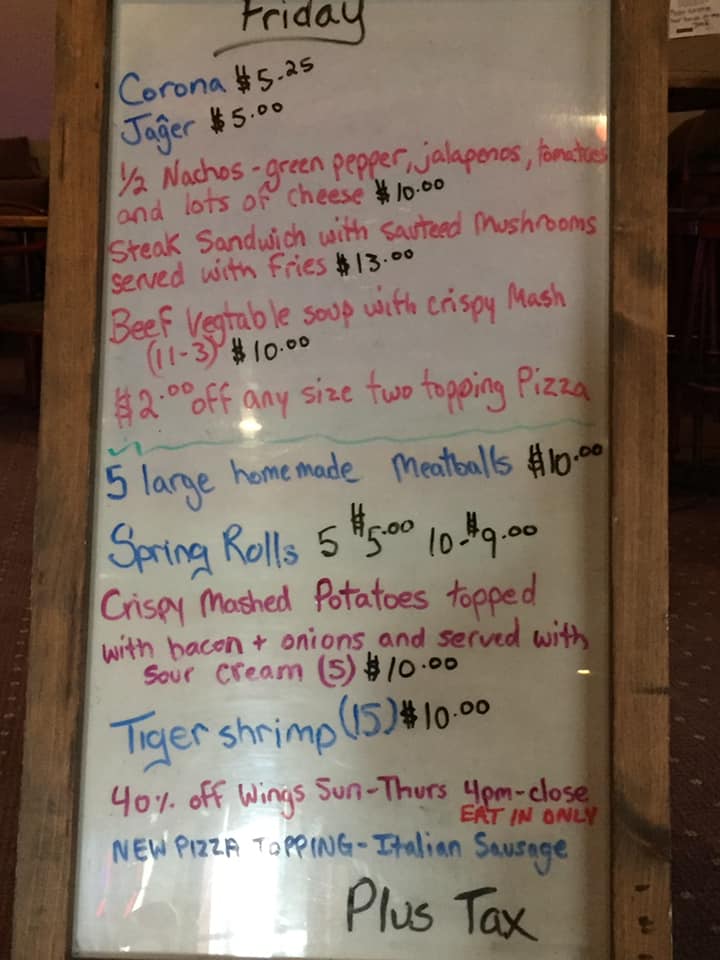 Friday
Corona $5.25
Jager $5.00
1/2 Nachos - green pepper, jalapenos, tomatoes
and lots of cheese $10.00
Steak Sandwich with sauteed Mushrooms
served with fries $13.00
Beef Vegtable soup with crispy Mash
(11-3) $10.00
$2.00 off any size two topping Pizza
5 large homemade Meatballs $10.00
Spring Rolls 5 $5.00 10-$9.00
Crispy Mashed Potatoes topped
with bacon + onions and served with
Sour cream (5) $10.00
Tiger shrimp (15) $10.00
40% off Wings Sun-Thurs 4pm-close
EAT IN ONLY
NEW PIZZA TOPPING - Italian Sausage
Plus Tax